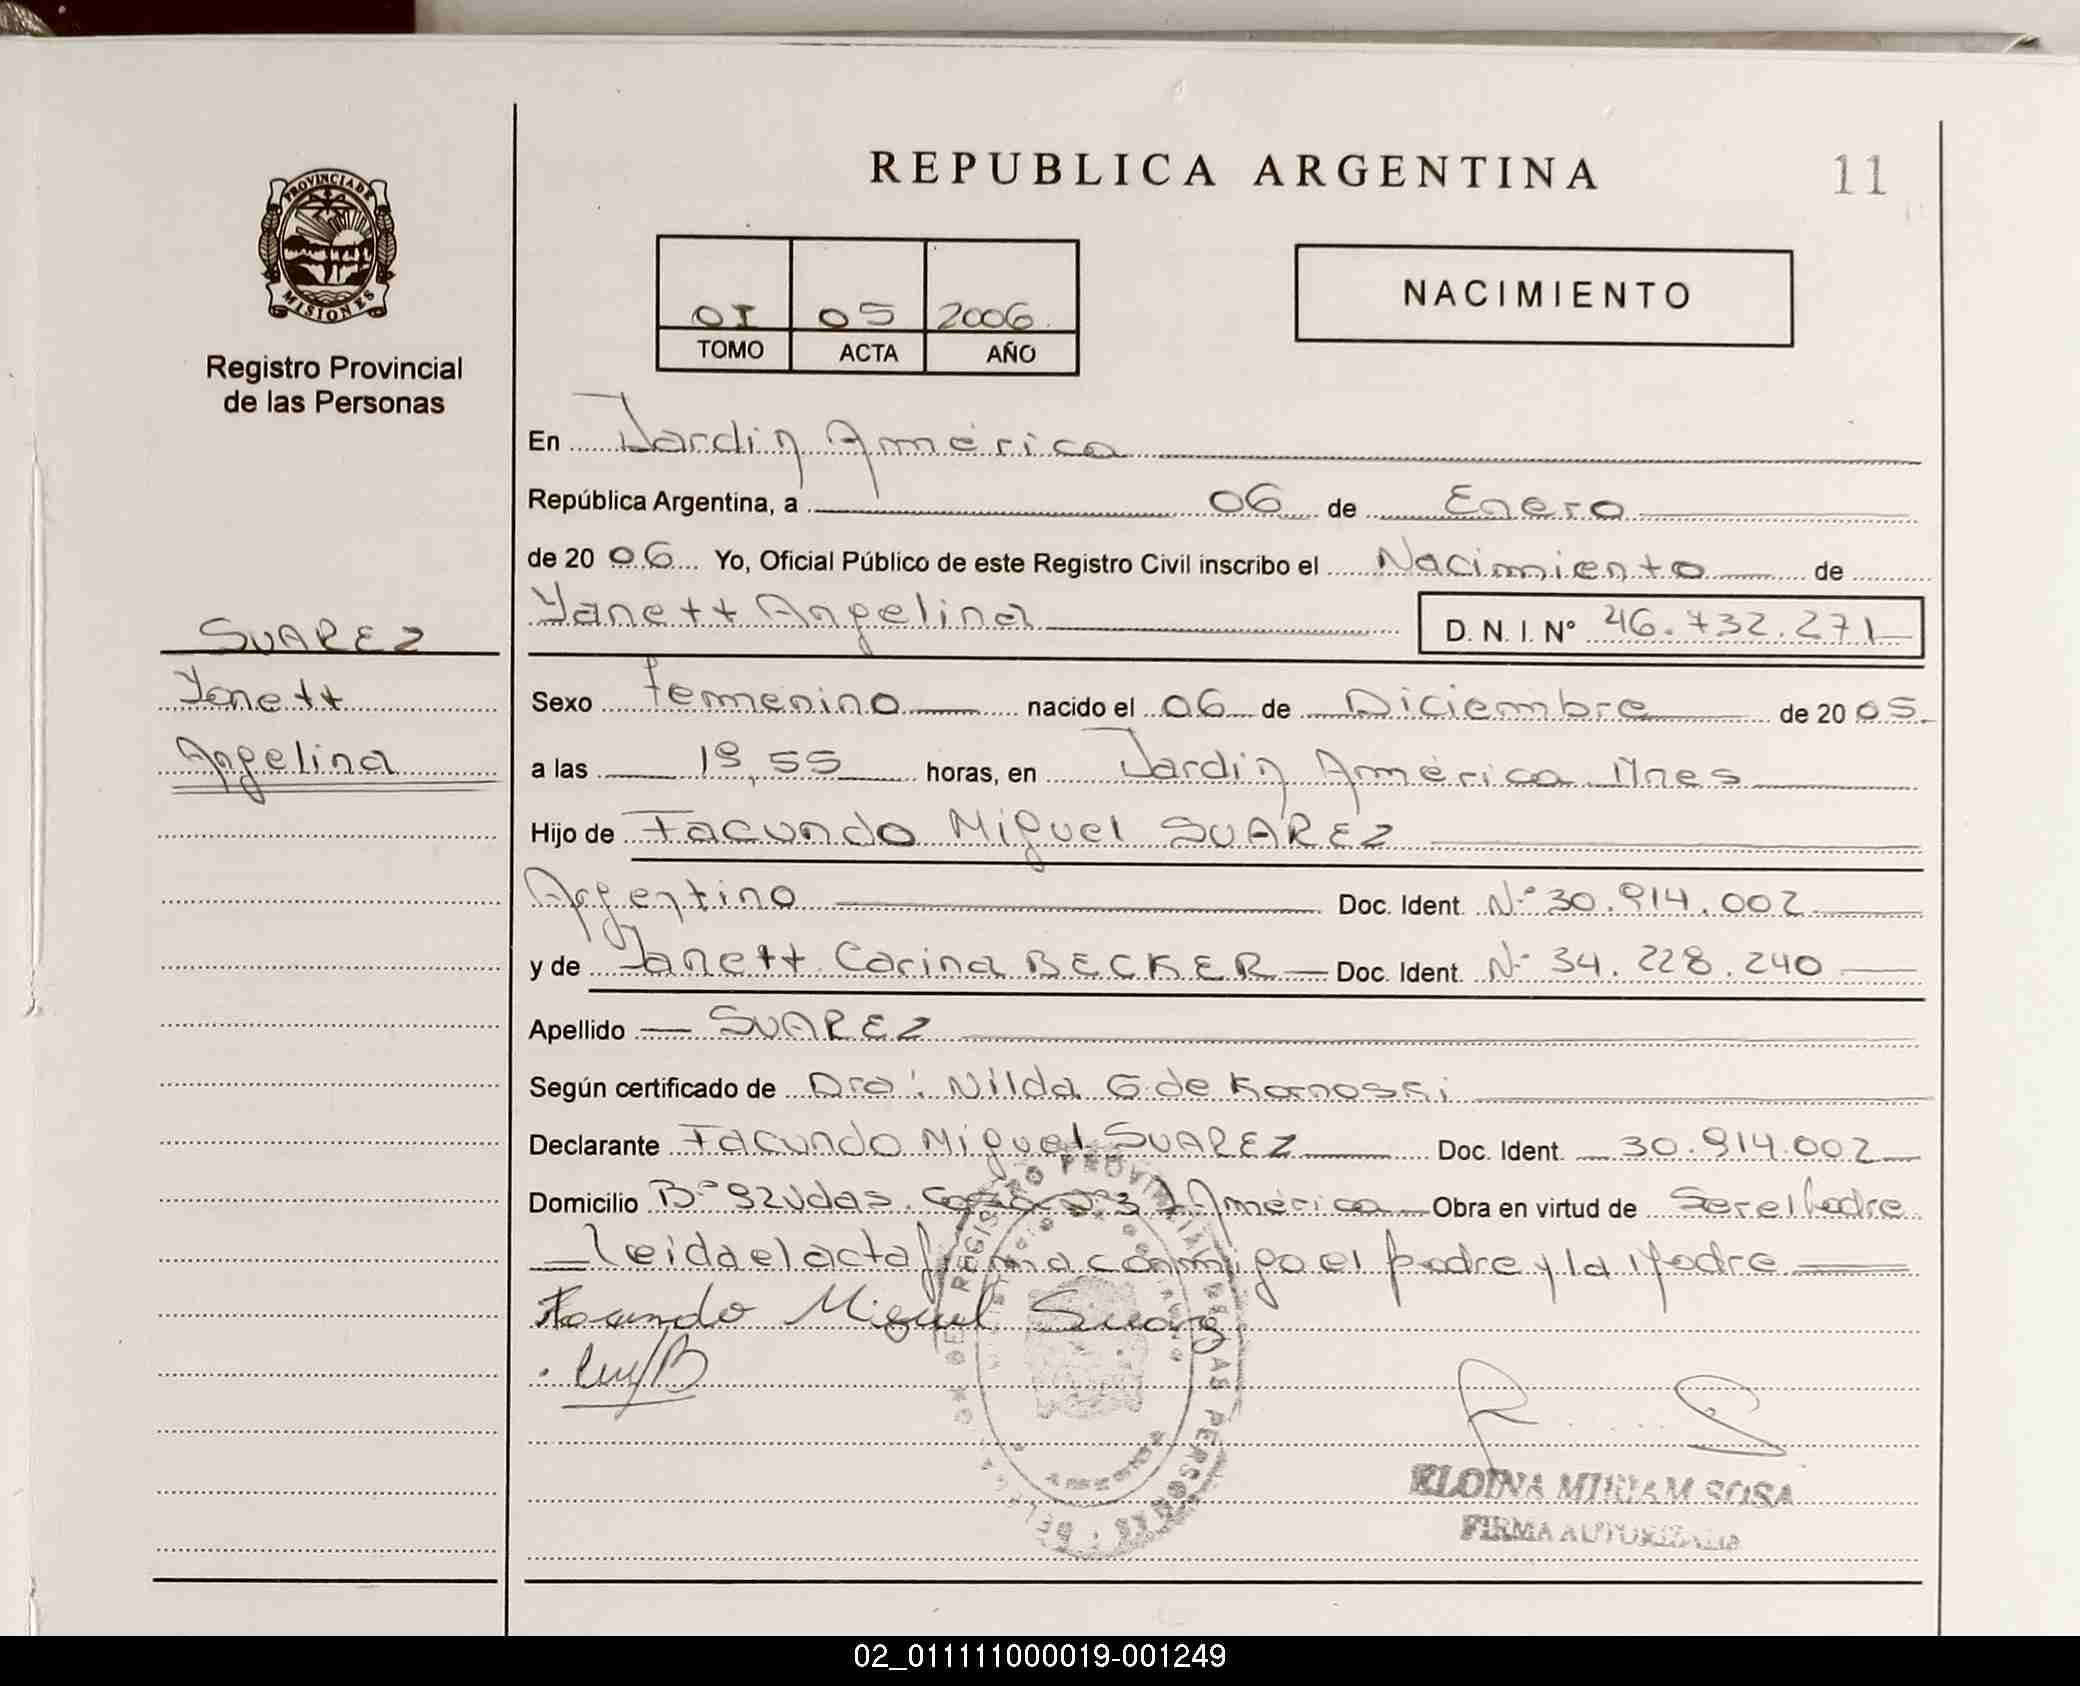 REPUBLICA ARGENTINA
11
PROVINCIA DE
MISIONES
Registro Provincial
de las Personas
OI 05 2006
TOMO ACTA AÑO
NACIMIENTO
En Jardin América
República Argentina, a 06 de Enero
de 20 06 Yo, Oficial Público de este Registro Civil inscribo el Nacimiento de
Yanett Angelina
D. N. I. Nº 46.732.271
SUAREZ
Yanett
Angelina
Sexo femenino nacido el 06 de Diciembre de 20 05
a las 19,55 horas, en Jardin América Mnes
Hijo de Facundo Miguel SUAREZ
Argentino Doc. Ident. Nº 30.914.002
y de Janett Carina BECKER Doc. Ident. Nº 34.228.240
Apellido SUAREZ
Según certificado de Dra: Nilda G de
Declarante Facundo Miguel SUAREZ Doc. Ident. 30.914.002
Domicilio Bº América Obra en virtud de Ser el Padre
leida el acta firma conmigo el padre y la Madre
Facundo Miguel Suarez
REGISTRO PROVINCIAL DE LAS PERSONAS
ELOINA MIRIAM SOSA
FIRMA AUTORIZADA
02_011111000019-001249